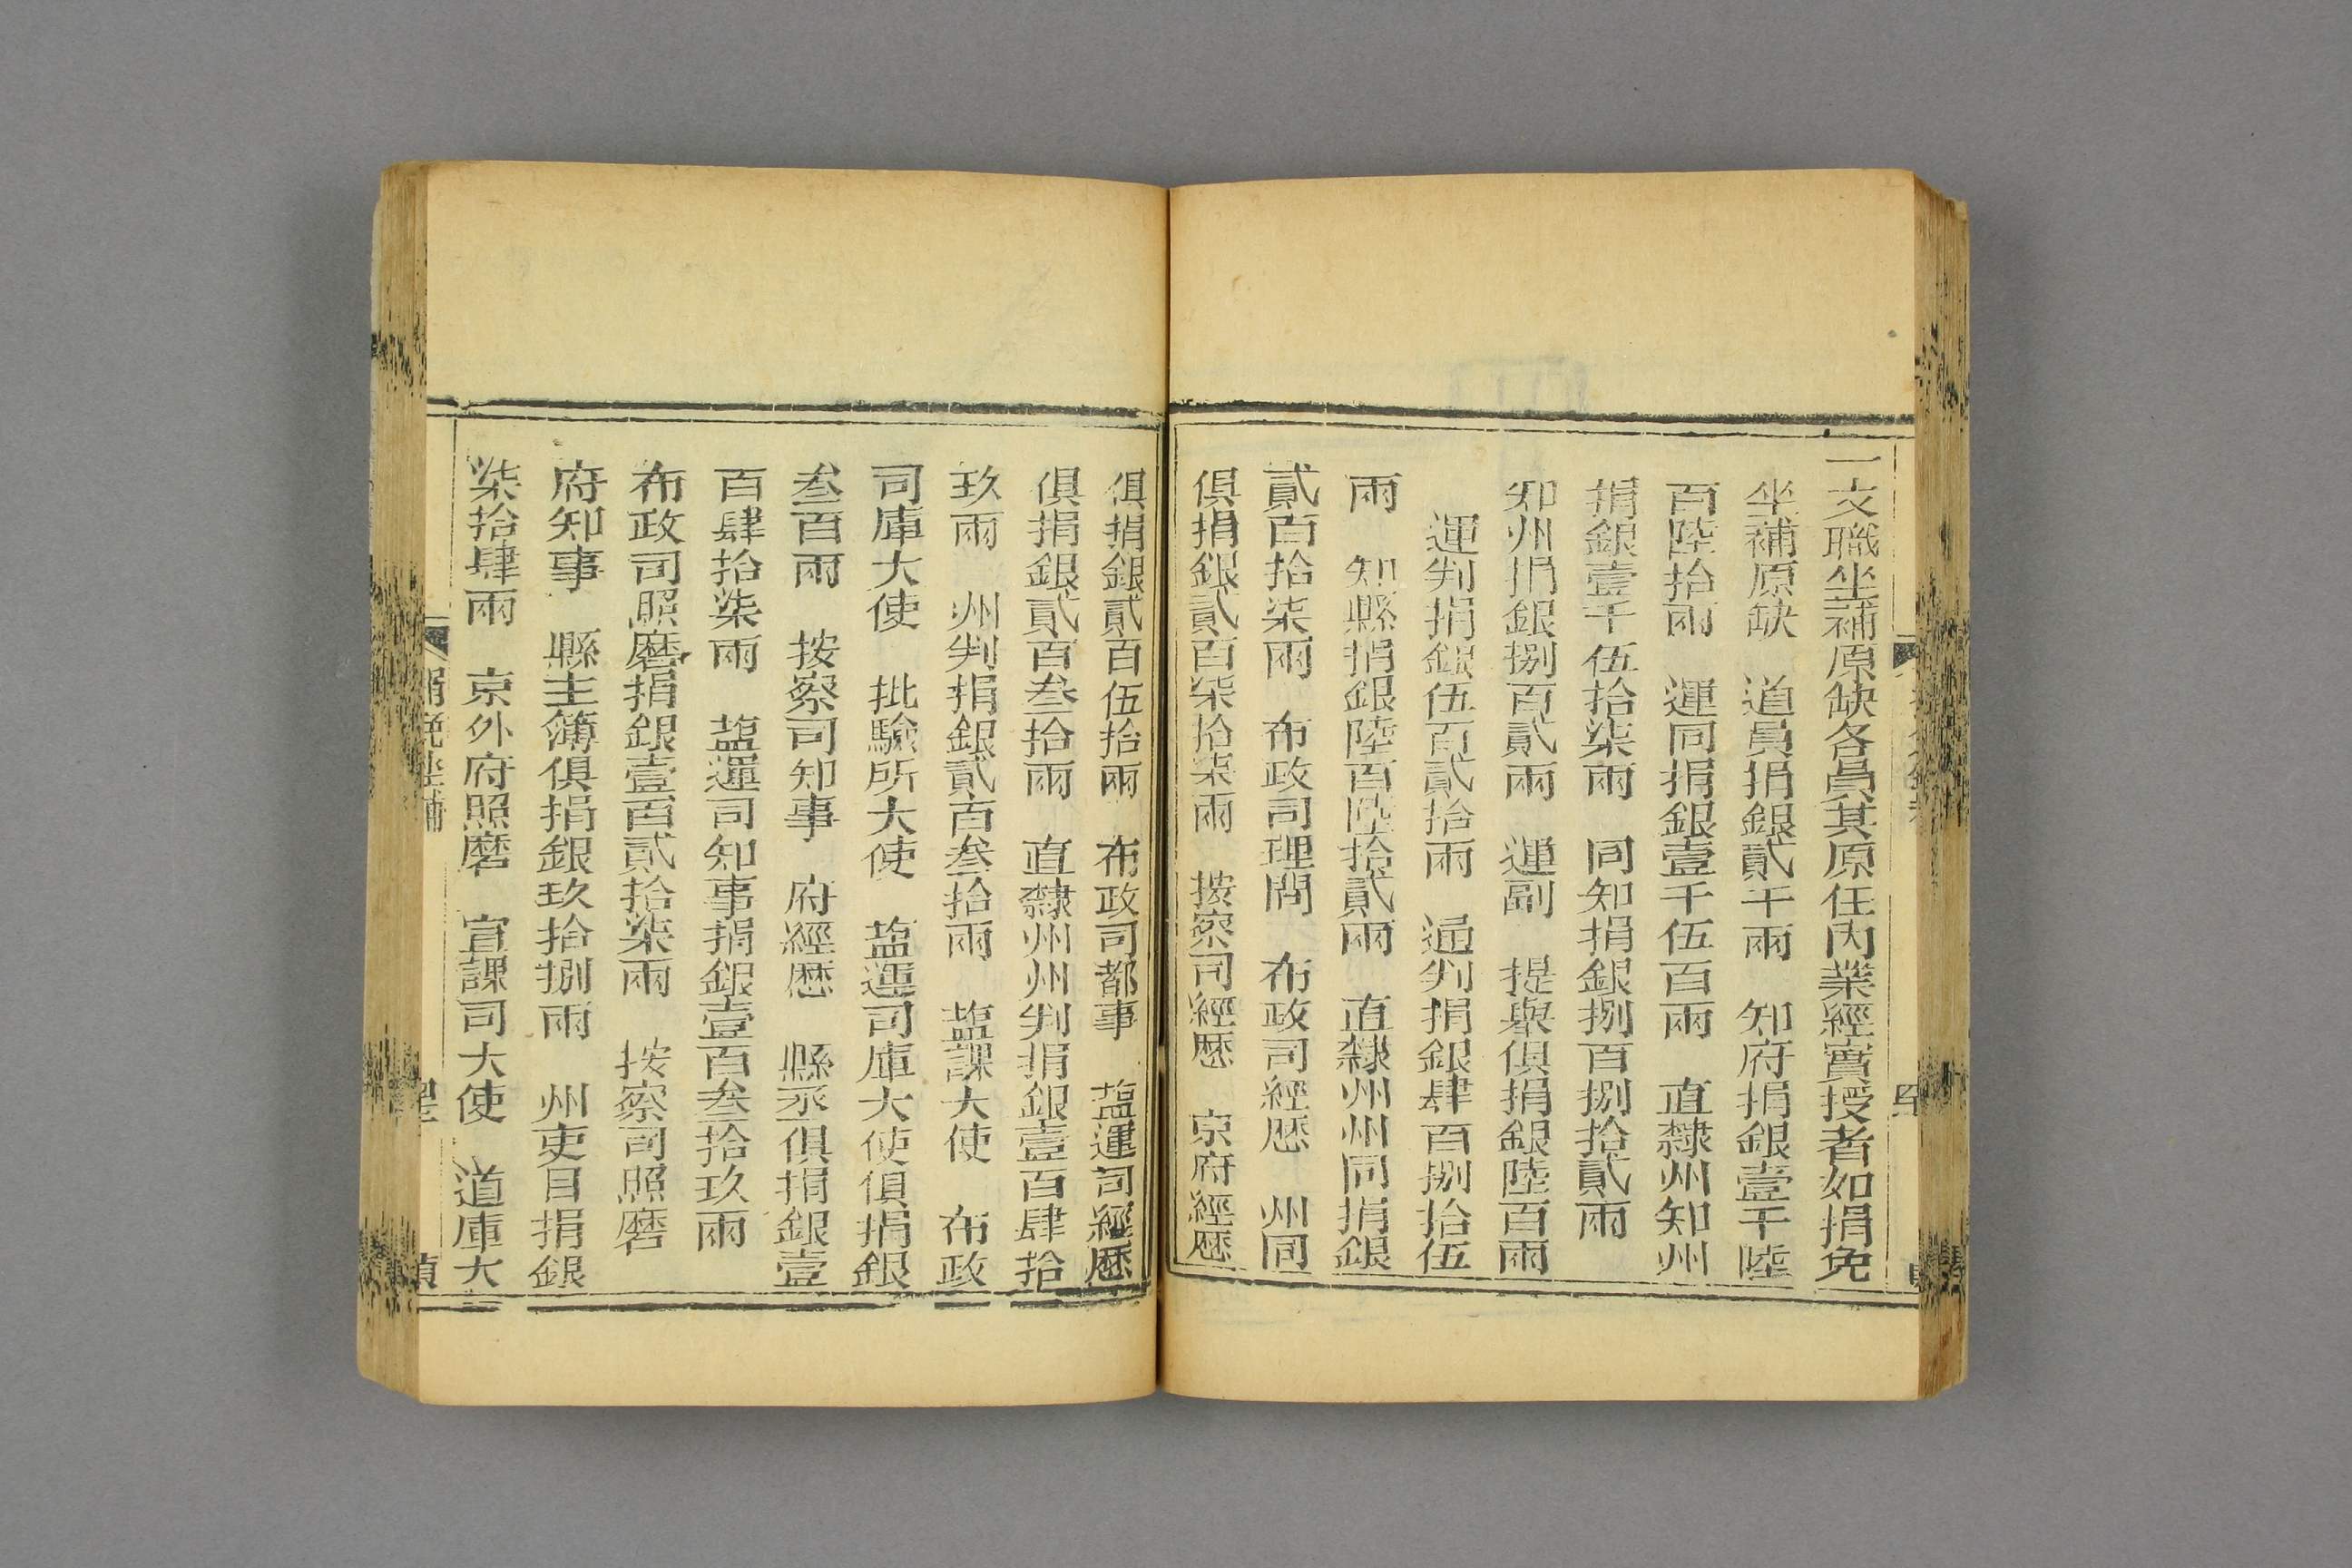 一文職坐補原缺各員其原任內業經實授者如捐免
坐補原缺　道員捐銀貳千兩　知府捐銀壹千陸
百陸拾兩　運同捐銀壹千伍百兩　直隸州知州
捐銀壹千伍拾柒兩　同知捐銀捌百捌拾貳兩
知州捐銀捌百貳兩　運副　提舉俱捐銀陸百兩
運判捐銀伍百貳拾兩　通判捐銀肆百捌拾伍
兩　知縣捐銀陸百陸拾貳兩　直隸州州同捐銀
貳百拾柒兩　布政司理問　布政司經歷　州同
俱捐銀貳百柒拾柒兩　按察司經歷　京府經歷
俱捐銀貳百伍拾兩　布政司都事　塩運司經歷
俱捐銀貳百叁拾兩　直隸州州判捐銀壹百肆拾
玖兩　州判捐銀貳百叁拾兩　塩課大使　布政
司庫大使　批驗所大使　塩運司庫大使俱捐銀
叁百兩　按察司知事　府經歷　縣丞俱捐銀壹
百肆拾柒兩　塩運司知事捐銀壹百叁拾玖兩
布政司照磨捐銀壹百貳拾柒兩　按察司照磨
府知事　縣主簿俱捐銀玖拾捌兩　州吏目捐銀
柒拾肆兩　京外府照磨　宣課司大使　道庫大
捐免坐補